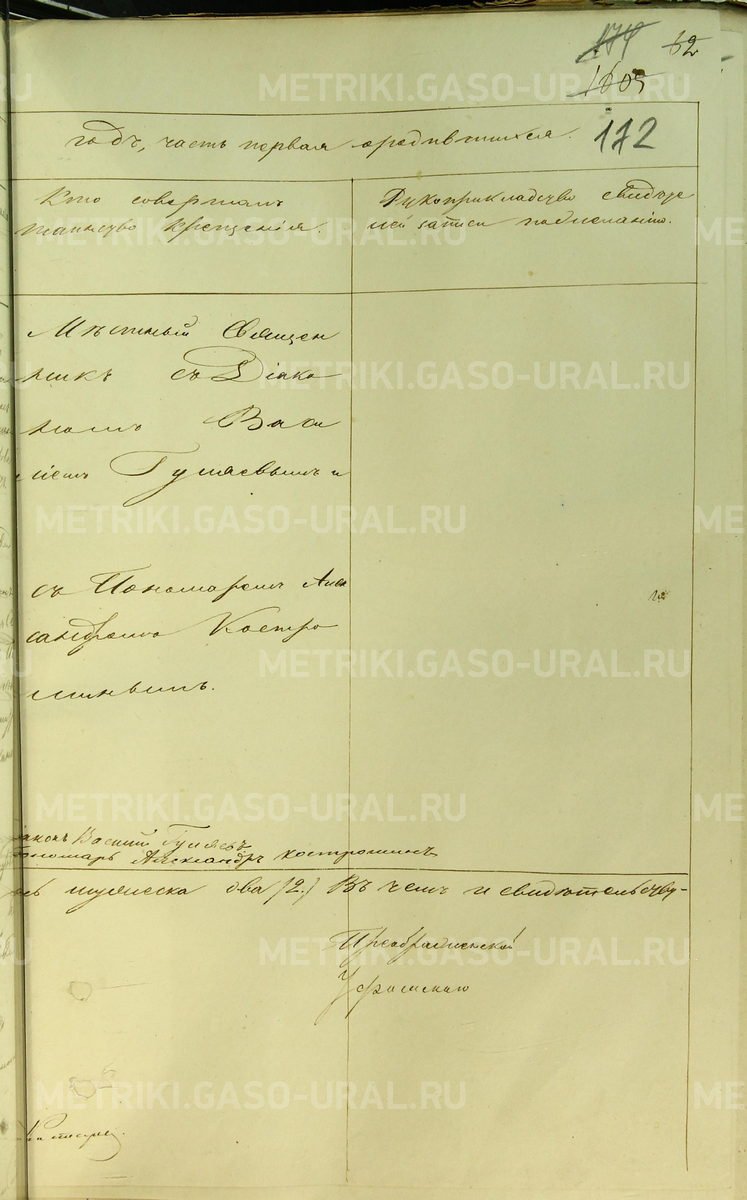 174 62
1605
172
годъ, часть первая ородившихся.
Кто совершалъ
таинство крещенія.
Рукоприкладство свидѣте
лей записи по желанію.
Мѣстный Священ
никъ съ Діако
номъ Васи
ліемъ Гуляевымъ и
съ Пономаремъ Алек
сандромъ Костро
минымъ.
Діаконъ Василій Гуляевъ
Пономарь Александръ Костроминъ
мужеска два (2.) Въ чемъ и свидѣтельству-
Преображенской
METRIKI.GASO-URAL.RU